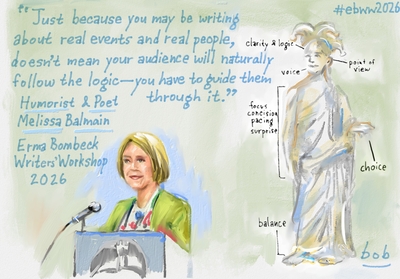 #ebww2026
"Just because you may be writing
about real events and real people,
doesn't mean your audience will naturally
follow the logic—you have to guide them
through it."
Humorist & Poet
Melissa Balmain
Erma Bombeck
Writers' Workshop
2026
clarity & logic
point of
view
voice
focus
concision
pacing
surprise
choice
balance
bob